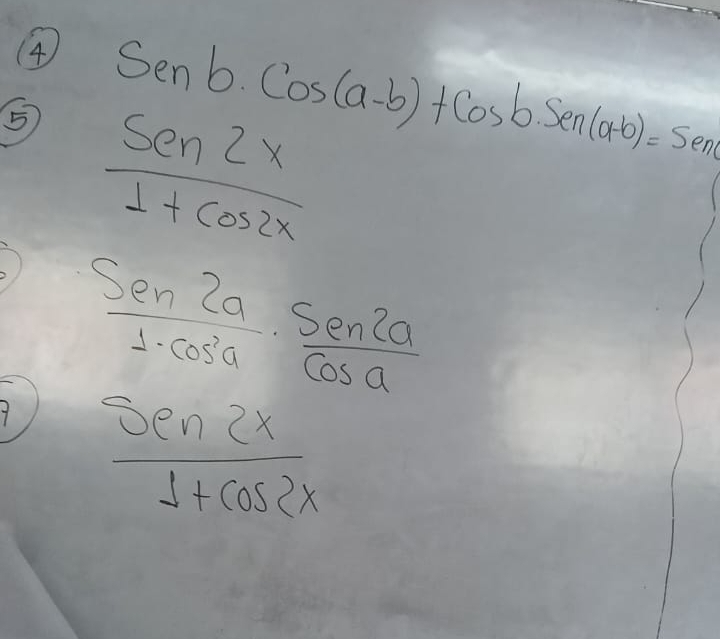 4 Sen b. Cos(a-b) + Cos b. Sen(a-b) = Sen(
5 Sen 2x
1 + cos 2x
Sen 2a . Sen 2a
1 - cos²a Cos a
7 Sen 2x
1 + cos 2x